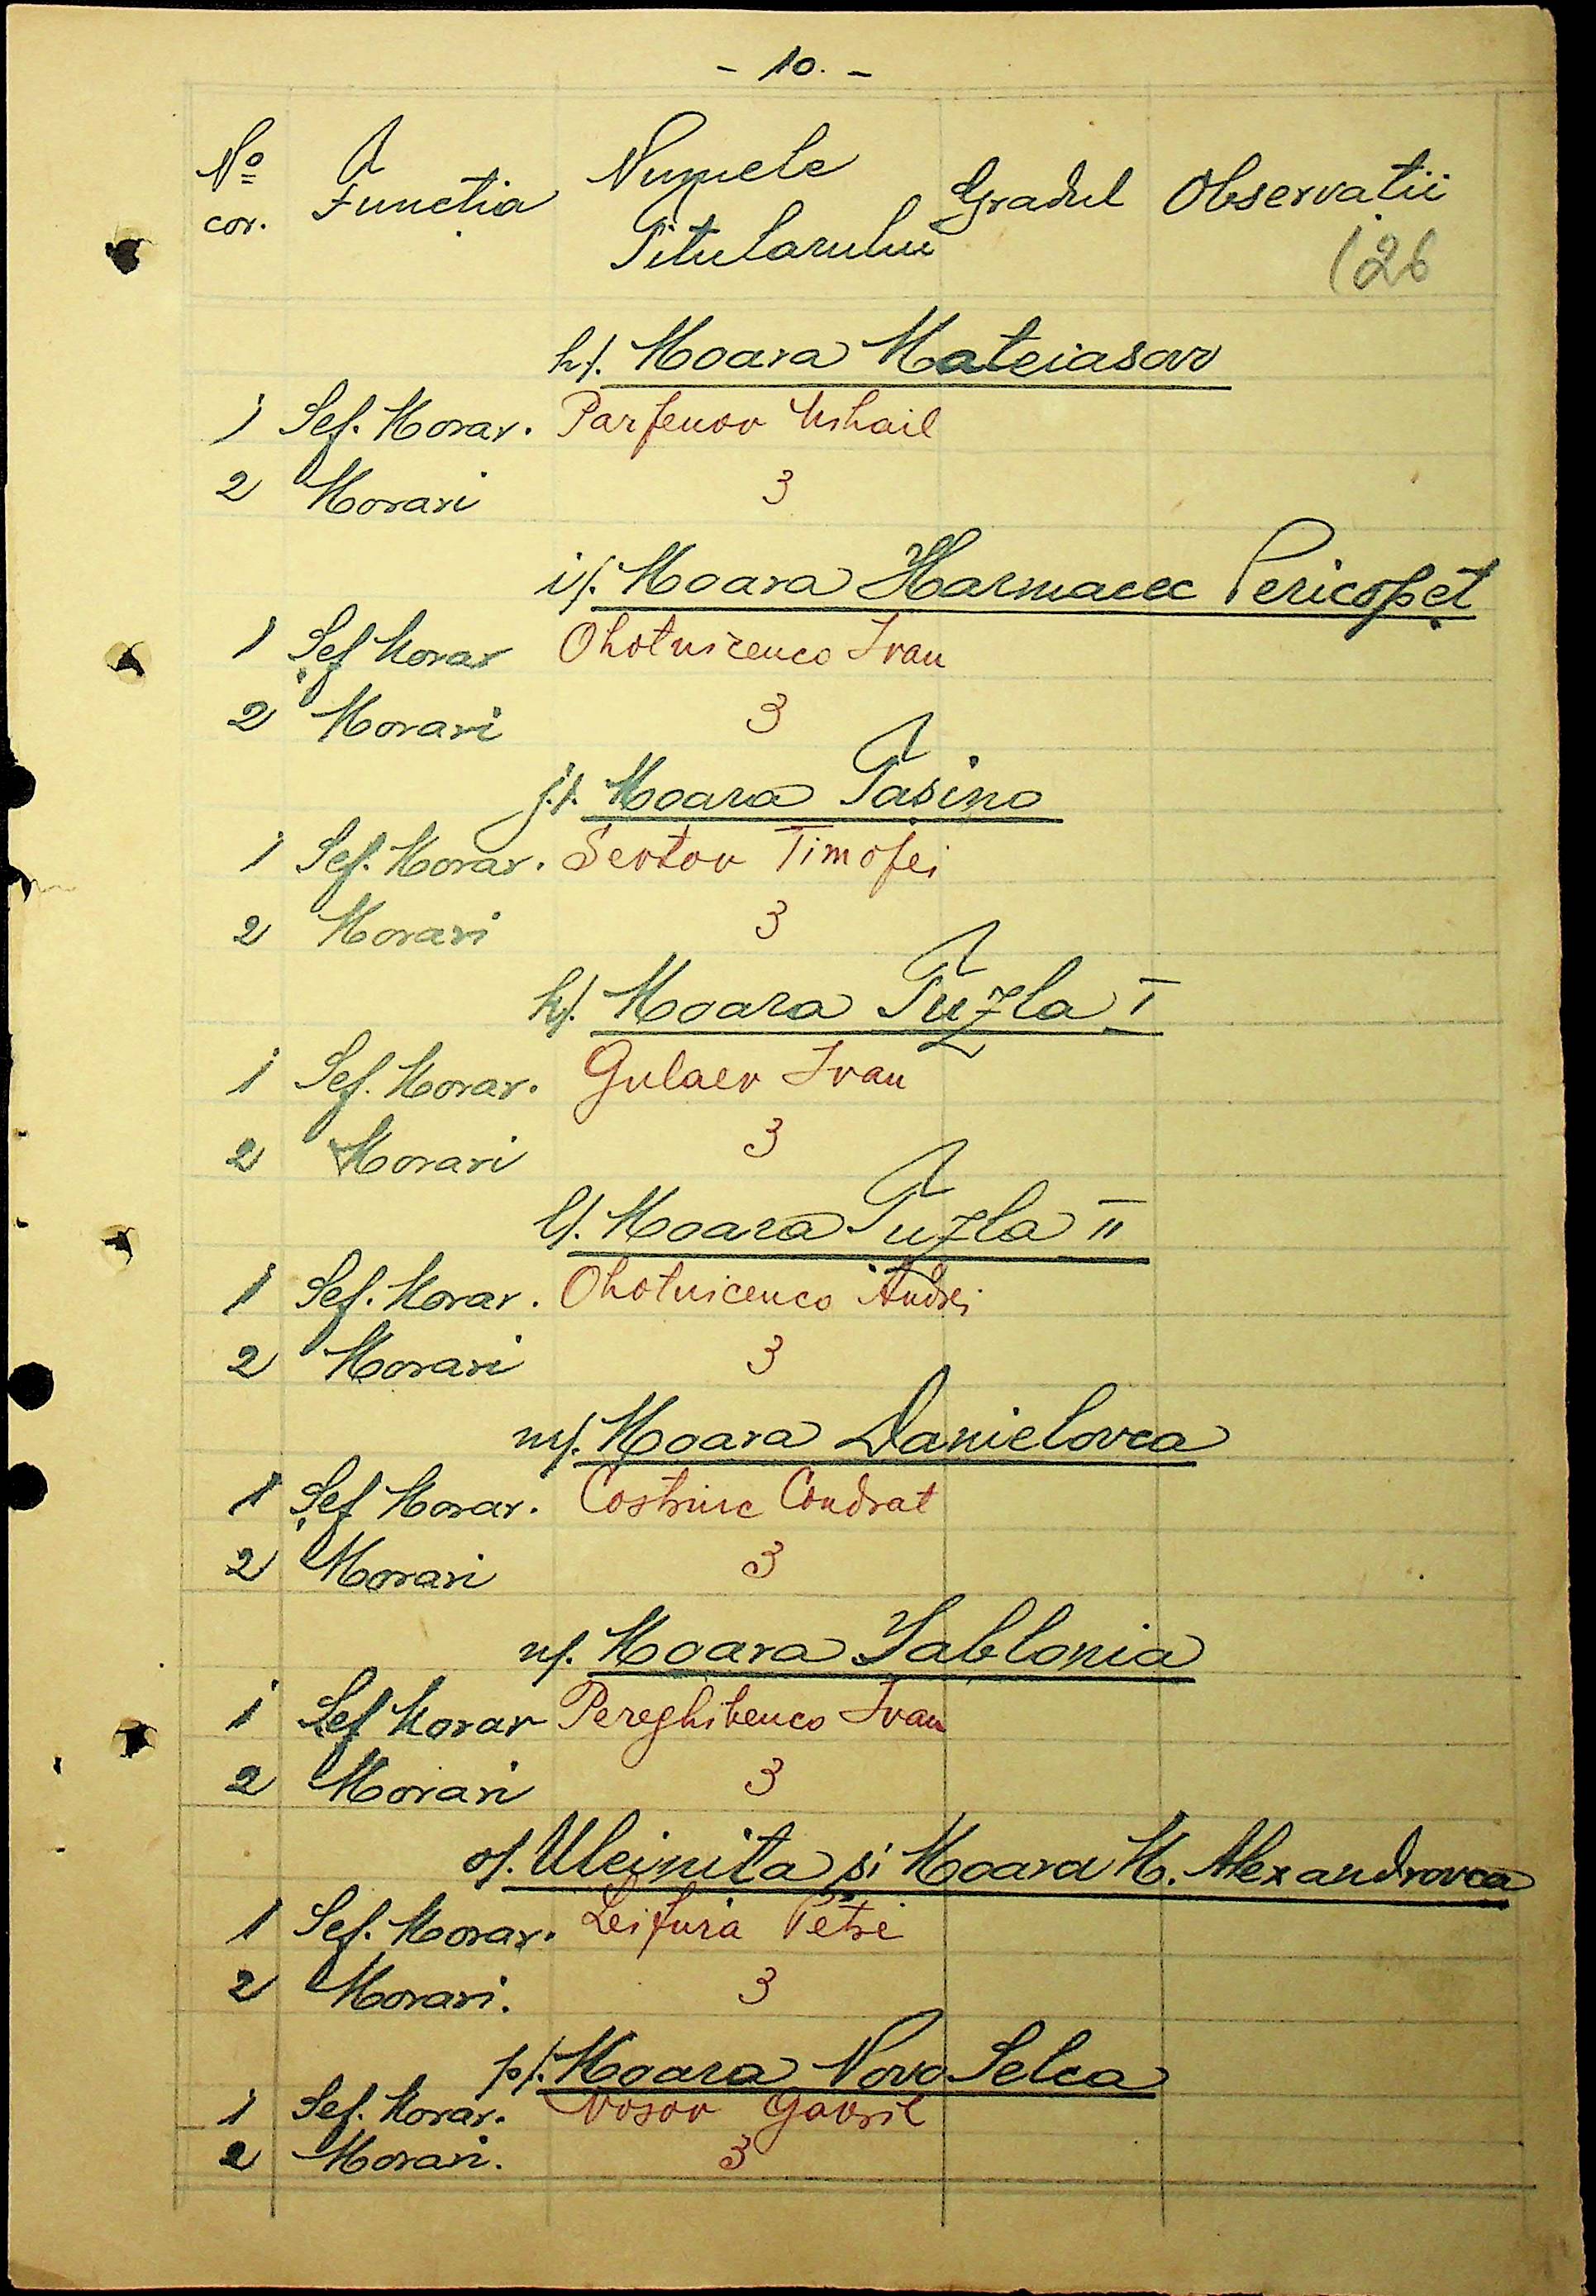 - 10. -
No cor. Funcția Numele Titularului Gradul Observații
126
h/. Moara Mateiasov
1 Sef. Morar. Parfenov Mihail
2 Morari 3
i/. Moara Harmacec Pericopeț
1 Șef Morar Ohotnicenco Ivan
2 Morari 3
j/. Moara Tașino
1 Sef. Morar. Sevtov Timofei
2 Morari 3
k/. Moara Tuzla I
1 Sef. Morar. Gulaev Ivan
2 Morari 3
l/. Moara Tuzla II
1 Sef. Morar. Ohotnicenco Andrei
2 Morari 3
m/. Moara Danielovca
1 Șef Morar. Costriuc Condrat
2 Morari 3
n/. Moara Iablonia
1 Șef Morar Pereghibenco Ivan
2 Morari 3
o/. Uleinita și Moara M. Alexandrovca
1 Sef. Morar. Leifura Petre
2 Morari. 3
p/. Moara Novo Selca
1 Sef. Morar. Nosov Gavril
2 Morari. 3